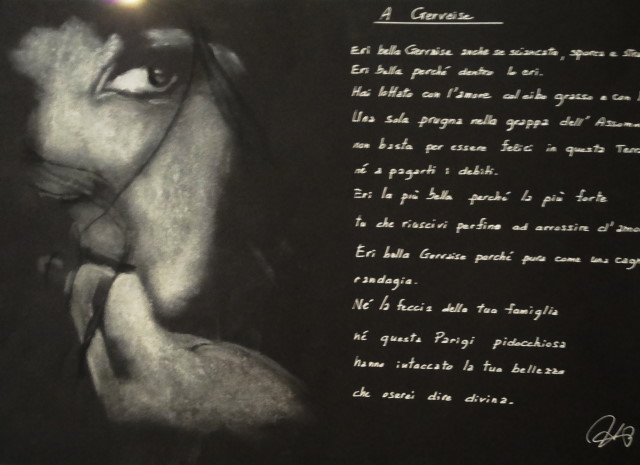 A Gervaise
Eri bella Gervaise anche se sciancata, sporca e
Eri bella perché dentro lo eri.
Hai lottato con l'amore col cibo grasso e con
Una sola prugna nella grappa dell'
non basta per essere felici in questa
né a pagarti i debiti.
Eri la più bella perché la più forte
tu che riuscivi perfino ad arrossire d'
Eri bella Gervaise perché pura come una
randagia.
Né la feccia della tua famiglia
né questa Parigi pidocchiosa
hanno intaccato la tua bellezza
che oserei dire divina.